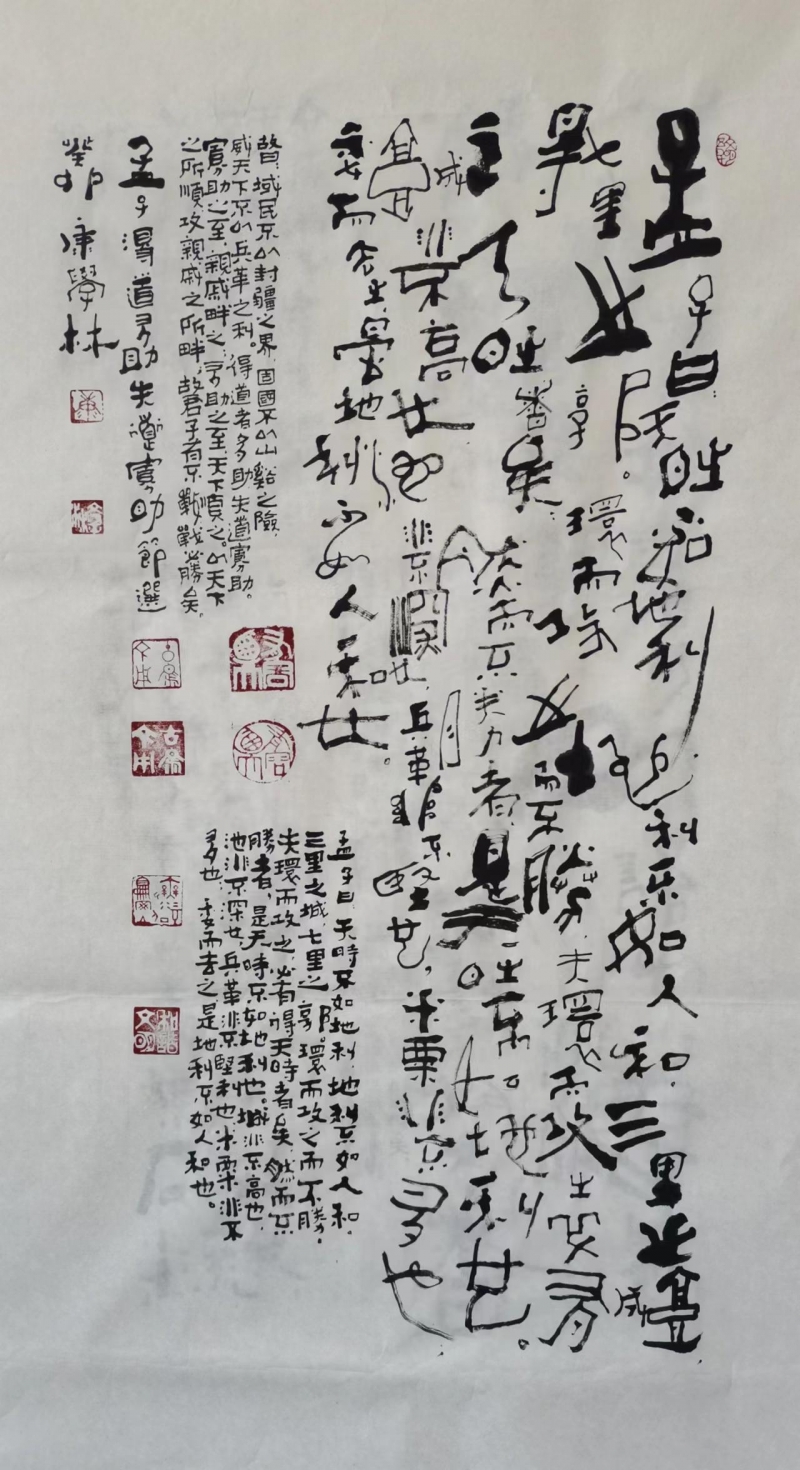 孟子曰天時不如地利地利不如人和三里之城
七里之郭。環而攻之而不勝夫環而攻之必有
得天時者矣然而不勝者是天時不如地利也。
城非不高也池非不深也兵革非不堅也米粟非不多也
委而去之是地利不如人和也。
孟子曰天時不如地利,地利不如人和,
三里之城,七里之郭,環而攻之而不勝。
夫環而攻之,必有得天時者矣,然而不
勝者,是天時不如地利也。城非不高也,
池非不深也,兵革非不堅利也,米粟非不
多也,委而去之是地利不如人和也。
故曰,域民不以封疆之界,固國不以山谿之險,
威天下不以兵革之利,得道者多助失道寡助。
寡助之至,親戚畔之,多助之至天下順之。以天下
之所順,攻親戚之所畔,故君子有不戰,戰必勝矣。
孟子得道多助失道寡助節選
癸卯康學林
古為今用